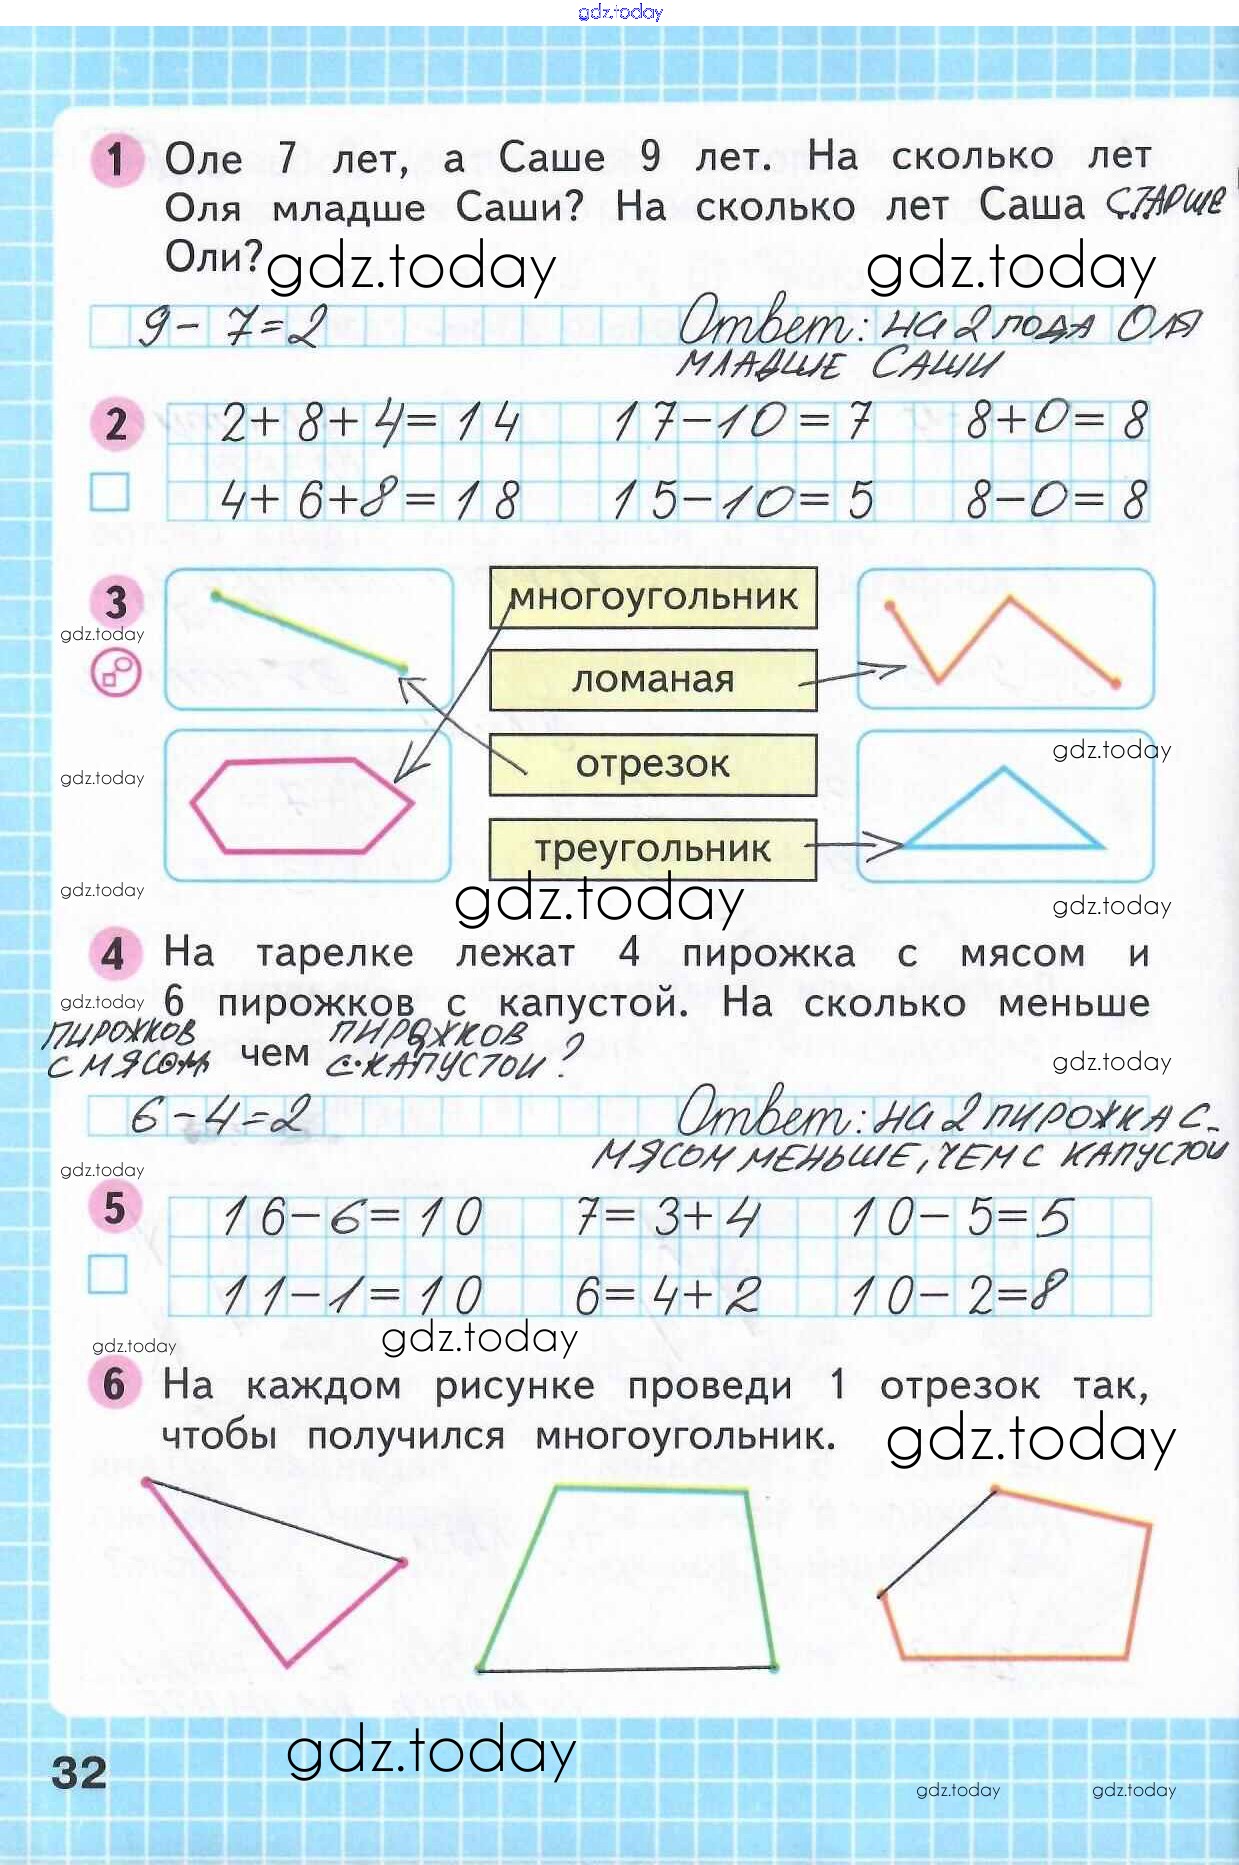 gdz.today
1 Оле 7 лет, а Саше 9 лет. На сколько лет
Оля младше Саши? На сколько лет Саша СТАРШЕ
Оли?
gdz.today gdz.today
9 - 7 = 2 Ответ: НА 2 ГОДА ОЛЯ
МЛАДШЕ САШИ
2 2 + 8 + 4 = 14 17 - 10 = 7 8 + 0 = 8
4 + 6 + 8 = 18 15 - 10 = 5 8 - 0 = 8
3 многоугольник
gdz.today
ломаная
gdz.today
отрезок
gdz.today
треугольник
gdz.today
gdz.today
gdz.today
4 На тарелке лежат 4 пирожка с мясом и
gdz.today
6 пирожков с капустой. На сколько меньше
ПИРОЖКОВ С МЯСОМ чем ПИРОЖКОВ С КАПУСТОЙ?
gdz.today
6 - 4 = 2 Ответ: НА 2 ПИРОЖКА С
МЯСОМ МЕНЬШЕ, ЧЕМ С КАПУСТОЙ
gdz.today
5 16 - 6 = 10 7 = 3 + 4 10 - 5 = 5
11 - 1 = 10 6 = 4 + 2 10 - 2 = 8
gdz.today
gdz.today
6 На каждом рисунке проведи 1 отрезок так,
чтобы получился многоугольник.
gdz.today
32
gdz.today
gdz.today gdz.today